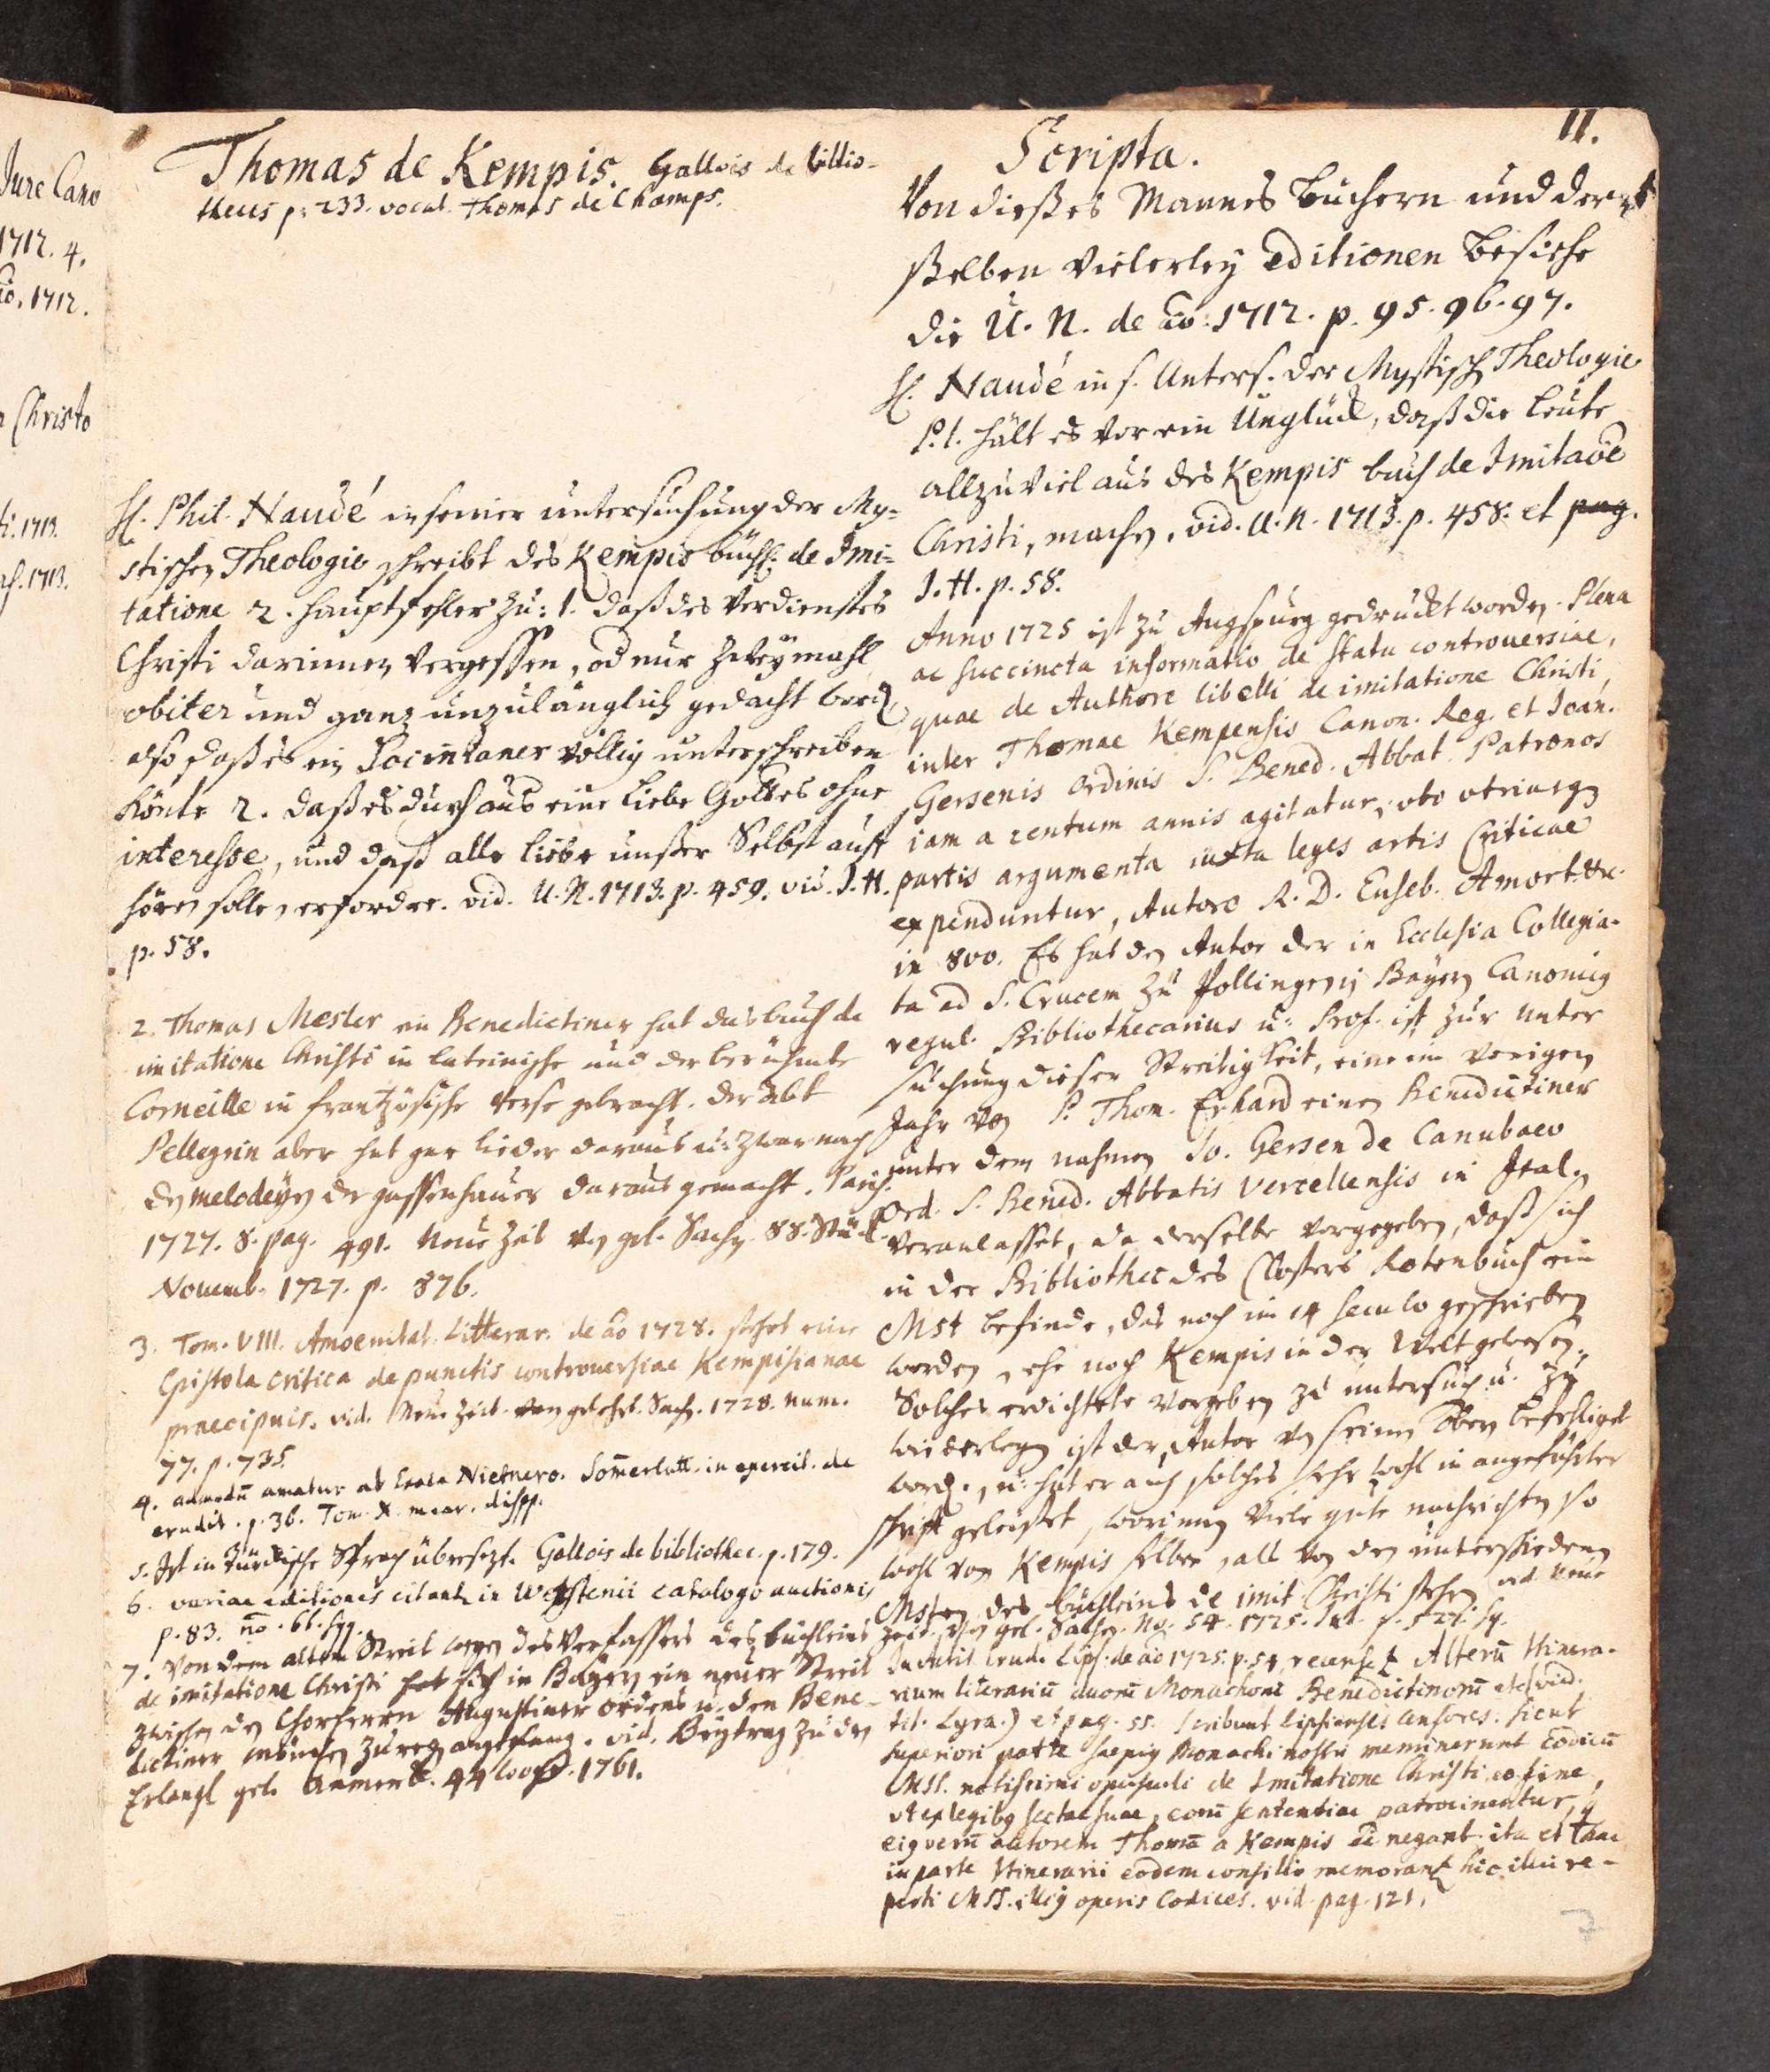 Jure Cano
1712. 4.
ao. 1712.
Christo
1713.
1713.
Thomas de Kempis. Gallois de biblio-
thecis p. 233. vocat Thomas de Champs.
H. Phil. Naudé in seiner untersuchung der My-
stischen Theologie schreibt des Kempis büchl. de Imi-
tatione 2. hauptfehler zu: 1. daß des Verdienstes
Christi darinnen vergessen, od nur zweymahl
obiter und ganz unzulänglich gedacht werd,
also daß es ein Socinianer völlig unterschreiben
könte 2. daß es durchaus eine Liebe Gottes ohne
interesse, und daß alle Liebe unßer Selbst auff
hören solle, erfordere. vid. U. N. 1713. p. 459. vid. J. H.
p. 58.
2. Thomas Mesler ein Benedictiner hat das buch de
imitatione Christi in lateinische und der berühmte
Corneille in frantzösische Verse gebracht. der Abt
Pellegrin aber hat gar Lieder daraus u. zwar nach
den melodeyen der gassenhauer daraus gemacht. Paris.
1727. 8. pag. 491. Neue Zeit. von gel. Sachen 88. Stück
Novemb. 1727. p. 876.
3. Tom. VIII. Amoenitat. Litterar. de ao 1728. stehet eine
Epistola critica de punctis controversiae Kempisianae
praecipuis. vid. Neue Zeit. von gelehrt. Sach. 1728. num.
77. p. 735.
4. amatur ab Nietnero. in exercit. de
erudit. p. 36. Tom. X. disp.
5. Ist in Türckische Sprach übersezt. Gallois de bibliothec. p. 179.
6. variae editiones citant. in Westenii catalogo auctionis
p. 83. no. 66. sqq.
7. Von dem alten Streit wegen des Verfassers des büchleins
de imitatione Christi hat sich in Bayern ein neuer Streit
zwischen den Chorherren Augustiner ordens u. den Bene-
dictiner mönchen zu regen angefang. vid. Beytrag zu den
Erlang. gel. Anmerk. 44 Woche. 1761.
Scripta.
11.
Von dießes Mannes büchern und der
ßelben vielerley editionen besiehe
die U. N. de ao. 1712. p. 95. 96. 97.
H. Naudé in s. Unters. der Mystisch Theologie
P. 1. hält es vor ein Unglück, daß die Leute
allzuviel aus des Kempis buch de Imitaoe
Christi, machen. vid. U. N. 1713. p. 458. et pag.
J. H. p. 58.
Anno 1725 ist zu Augspurg gedruckt worden. Plena
ac succincta informatio de statu controversiae,
quae de Authore libelli de imitatione Christi,
inter Thomae Kempensis Canon. Reg. et Joan.
Gersenis Ordinis S. Bened. Abbat. Patronos
iam a centum annis agitatur, ubi utriusq
partis argumenta iuxta leges artis Criticae
expenduntur, Autore R. D. Euseb. Amort. etc.
in 8vo. Es hat den Autor der in Ecclesia Collegia-
ta ad S. Crucem zu Pollingen in Bayern Canonicus
regul. Bibliothecarius u. Prof. ist zur Unter
suchung dieser Streitigkeit, eine im vorigen
Jahr von P. Thom. Erhard einen Benedictiner
unter dem nahmen Jo. Gersen de Canabaco
Ord. S. Bened. Abbatis Vercellensis in Ital.
veranlasset, da derselbe vorgegeben, daß sich
in der Bibliothec des Closters Rotenbuch ein
Mst befinde, das noch im 14 seculo geschrieben
worden, ehe noch Kempis in der Welt gewesen.
Solches erdichtete Vorgeben zu untersuch. u. zu
wiederlegen ist der Autor von seinen Obern befehligt
word., u. hat er auch solches sehr wohl in angeführter
schrift geleistet, worinnen viele gute nachrichten so
wohl von Kempis selber, als von den unterschiedenen
Msten des büchleins de imit. Christi stehen vid. Neue
Zeit. von gel. Sachen. No. 54. 1725. Jul. p. 527. sq.
In Actis Erud. Lips. de ao 1725. p. 54. recenset Alterū Itinera-
rium literariū duorū Monachorū Benedictinorū etc. (vid.
tit. Lyra.) et pag. 55. scribunt Lipsienses Censores: sicut
superiori parte saepig Monachi nostri meminerunt codicū
MSS. notissimi opusculi de Imitatione Christi, eo fine,
ut ex legibg sectae suae, eorū sententiae patrocinentur, q
eig verū autorem Thomā a Kempis ēē negant. ita et hac
in parte Itinerarii eodem consilio memorant. hic illic re-
perti MSS. illig operis Codices. vid. pag. 121.